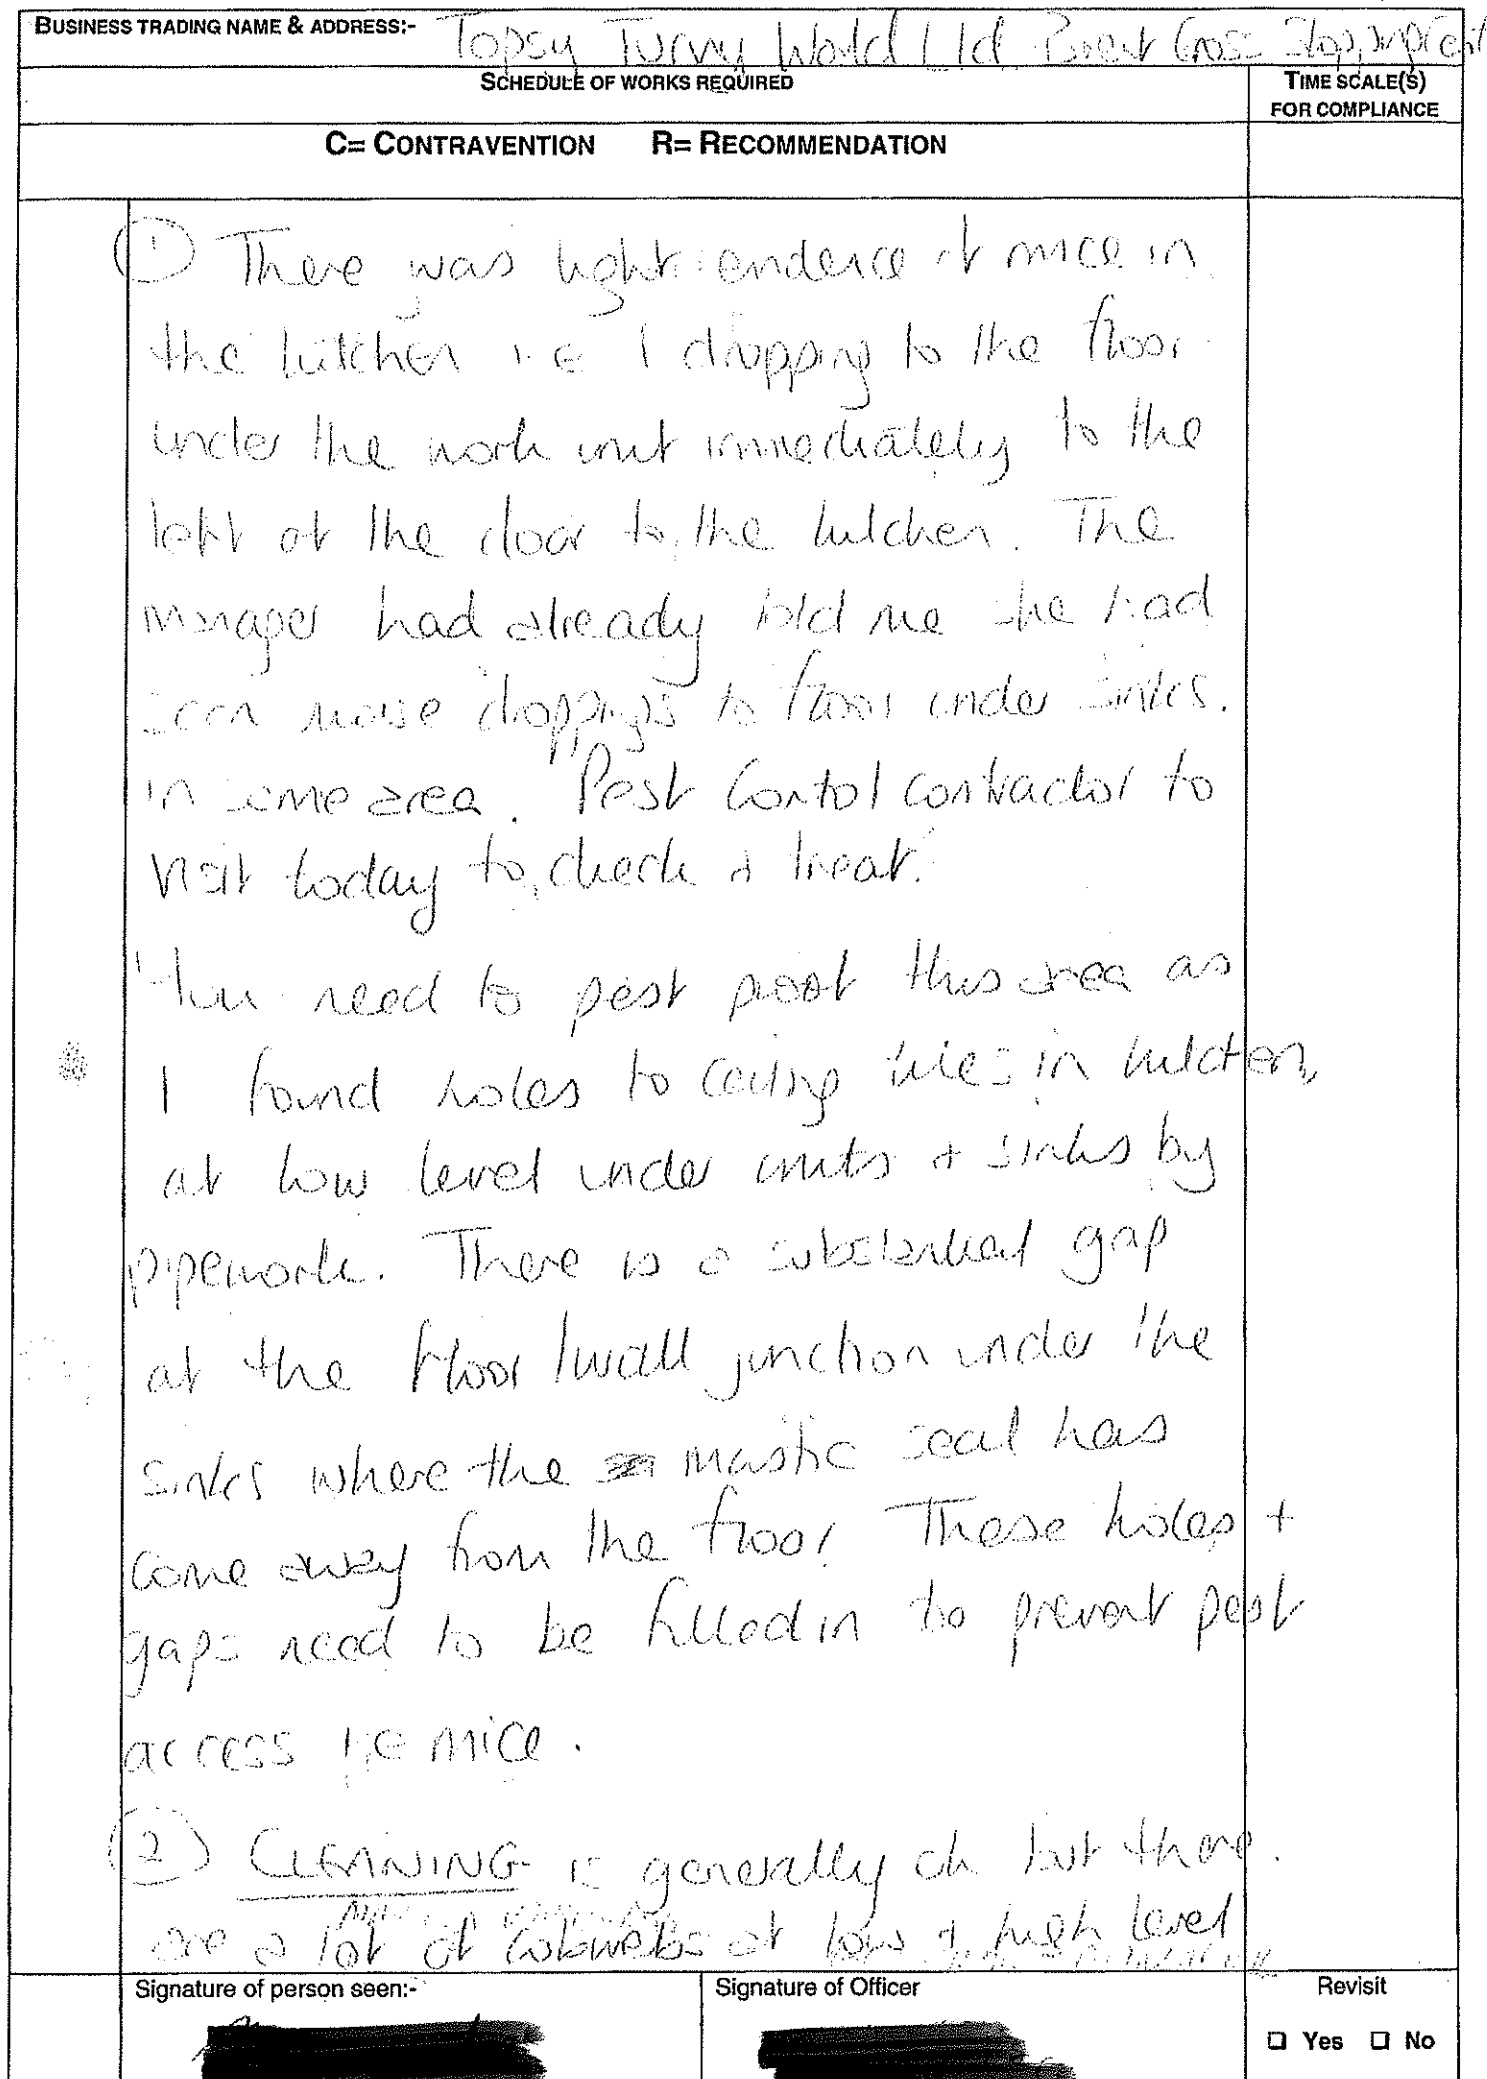 BUSINESS TRADING NAME & ADDRESS:- Topsy Turvy World Ltd Brent Cross Shopping Cent
SCHEDULE OF WORKS REQUIRED
TIME SCALE(S)
FOR COMPLIANCE
C= CONTRAVENTION R= RECOMMENDATION
1 There was light evidence of mice in
the kitchen i.e 1 dropping to the floor
under the work unit immediately to the
left of the door to the kitchen. The
manager had already told me she had
seen mouse droppings to floor under sinks.
in same area. Pest Control contractor to
visit today to check & treat.
You need to pest proof this area as
I found holes to ceiling tiles in kitchen,
at low level under units + sinks by
pipework. There is a substantial gap
at the floor/wall junction under the
sinks where the mastic seal has
come away from the floor. These holes +
gaps need to be filled in to prevent pest
access i.e mice.
2 CLEANING is generally ok but there.
are a lot of cobwebs at low & high level
Signature of person seen:-
Signature of Officer
Revisit
☐ Yes ☐ No